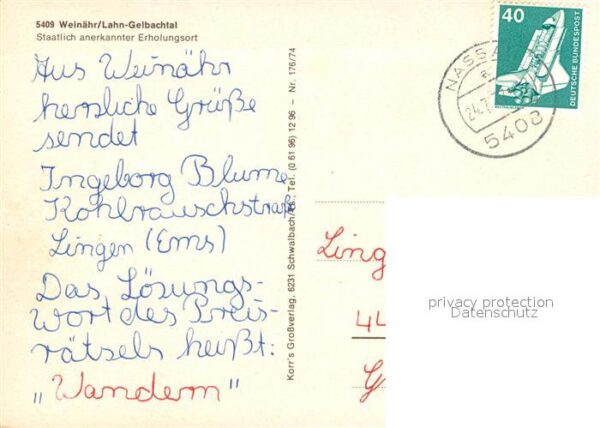 5409 Weinähr/Lahn-Gelbachtal
Staatlich anerkannter Erholungsort
Aus Weinähr
herzliche Grüße
sendet
Ingeborg Blume
Kohlrauschstraße
Lingen (Ems)
Das Lösungs-
wort des Preis-
rätsels heißt:
„Wandern"
Korr's Großverlag, 6231 Schwalbach/Ts. Tel. (0 61 96) 12 96 – Nr. 176/74
40
DEUTSCHE BUNDESPOST
NASSA
a
24.7
5408
Ling
44
privacy protection
Datenschutz